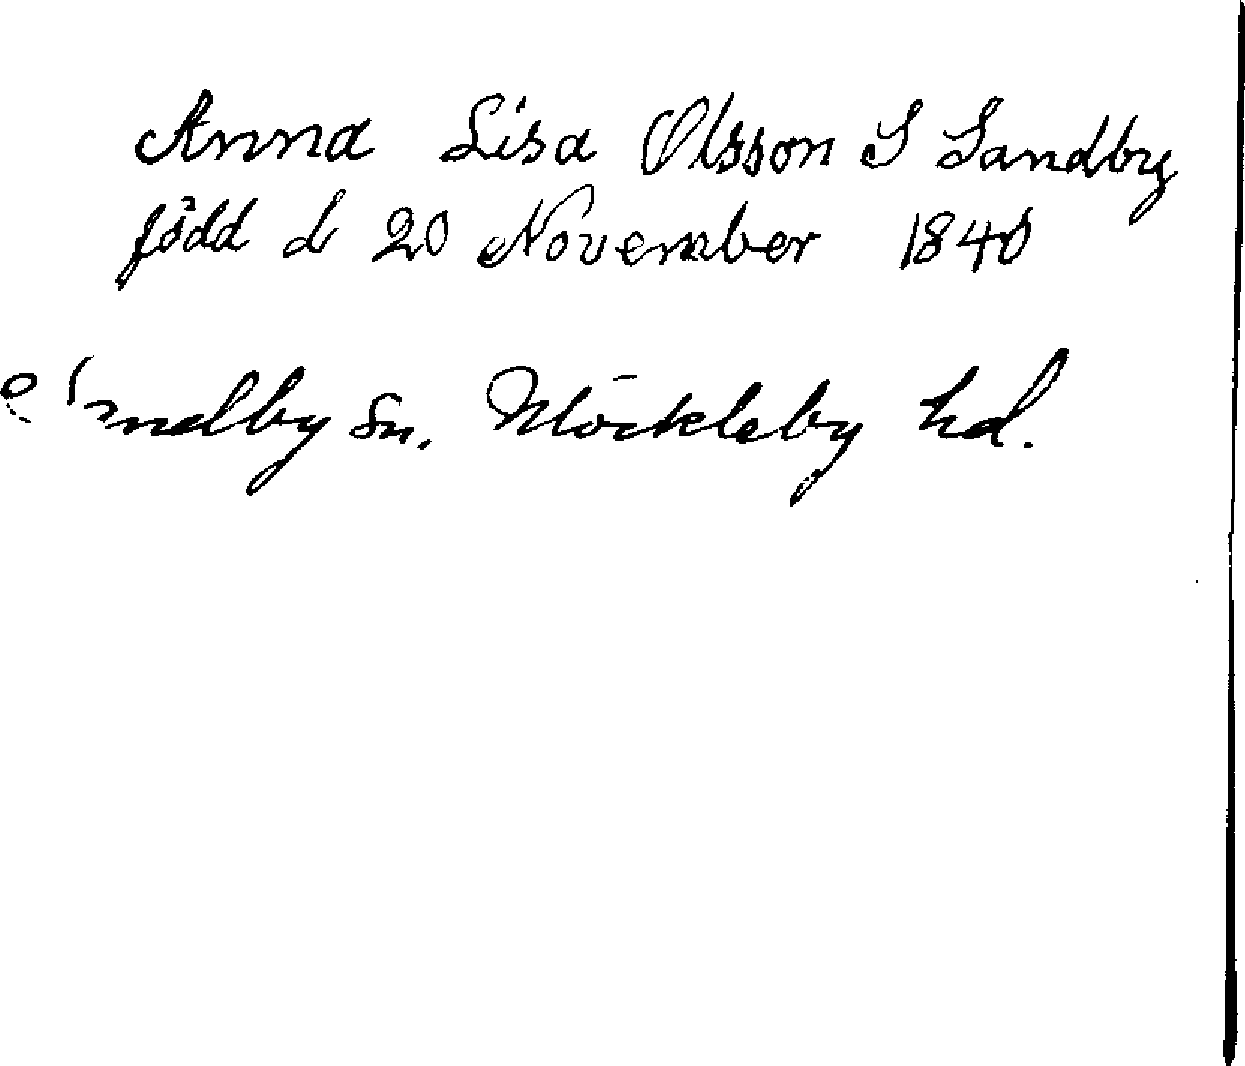 Anna Lisa Olsson S Sandby
född d 20 November 1840
Sandby sn. Möckleby hd.